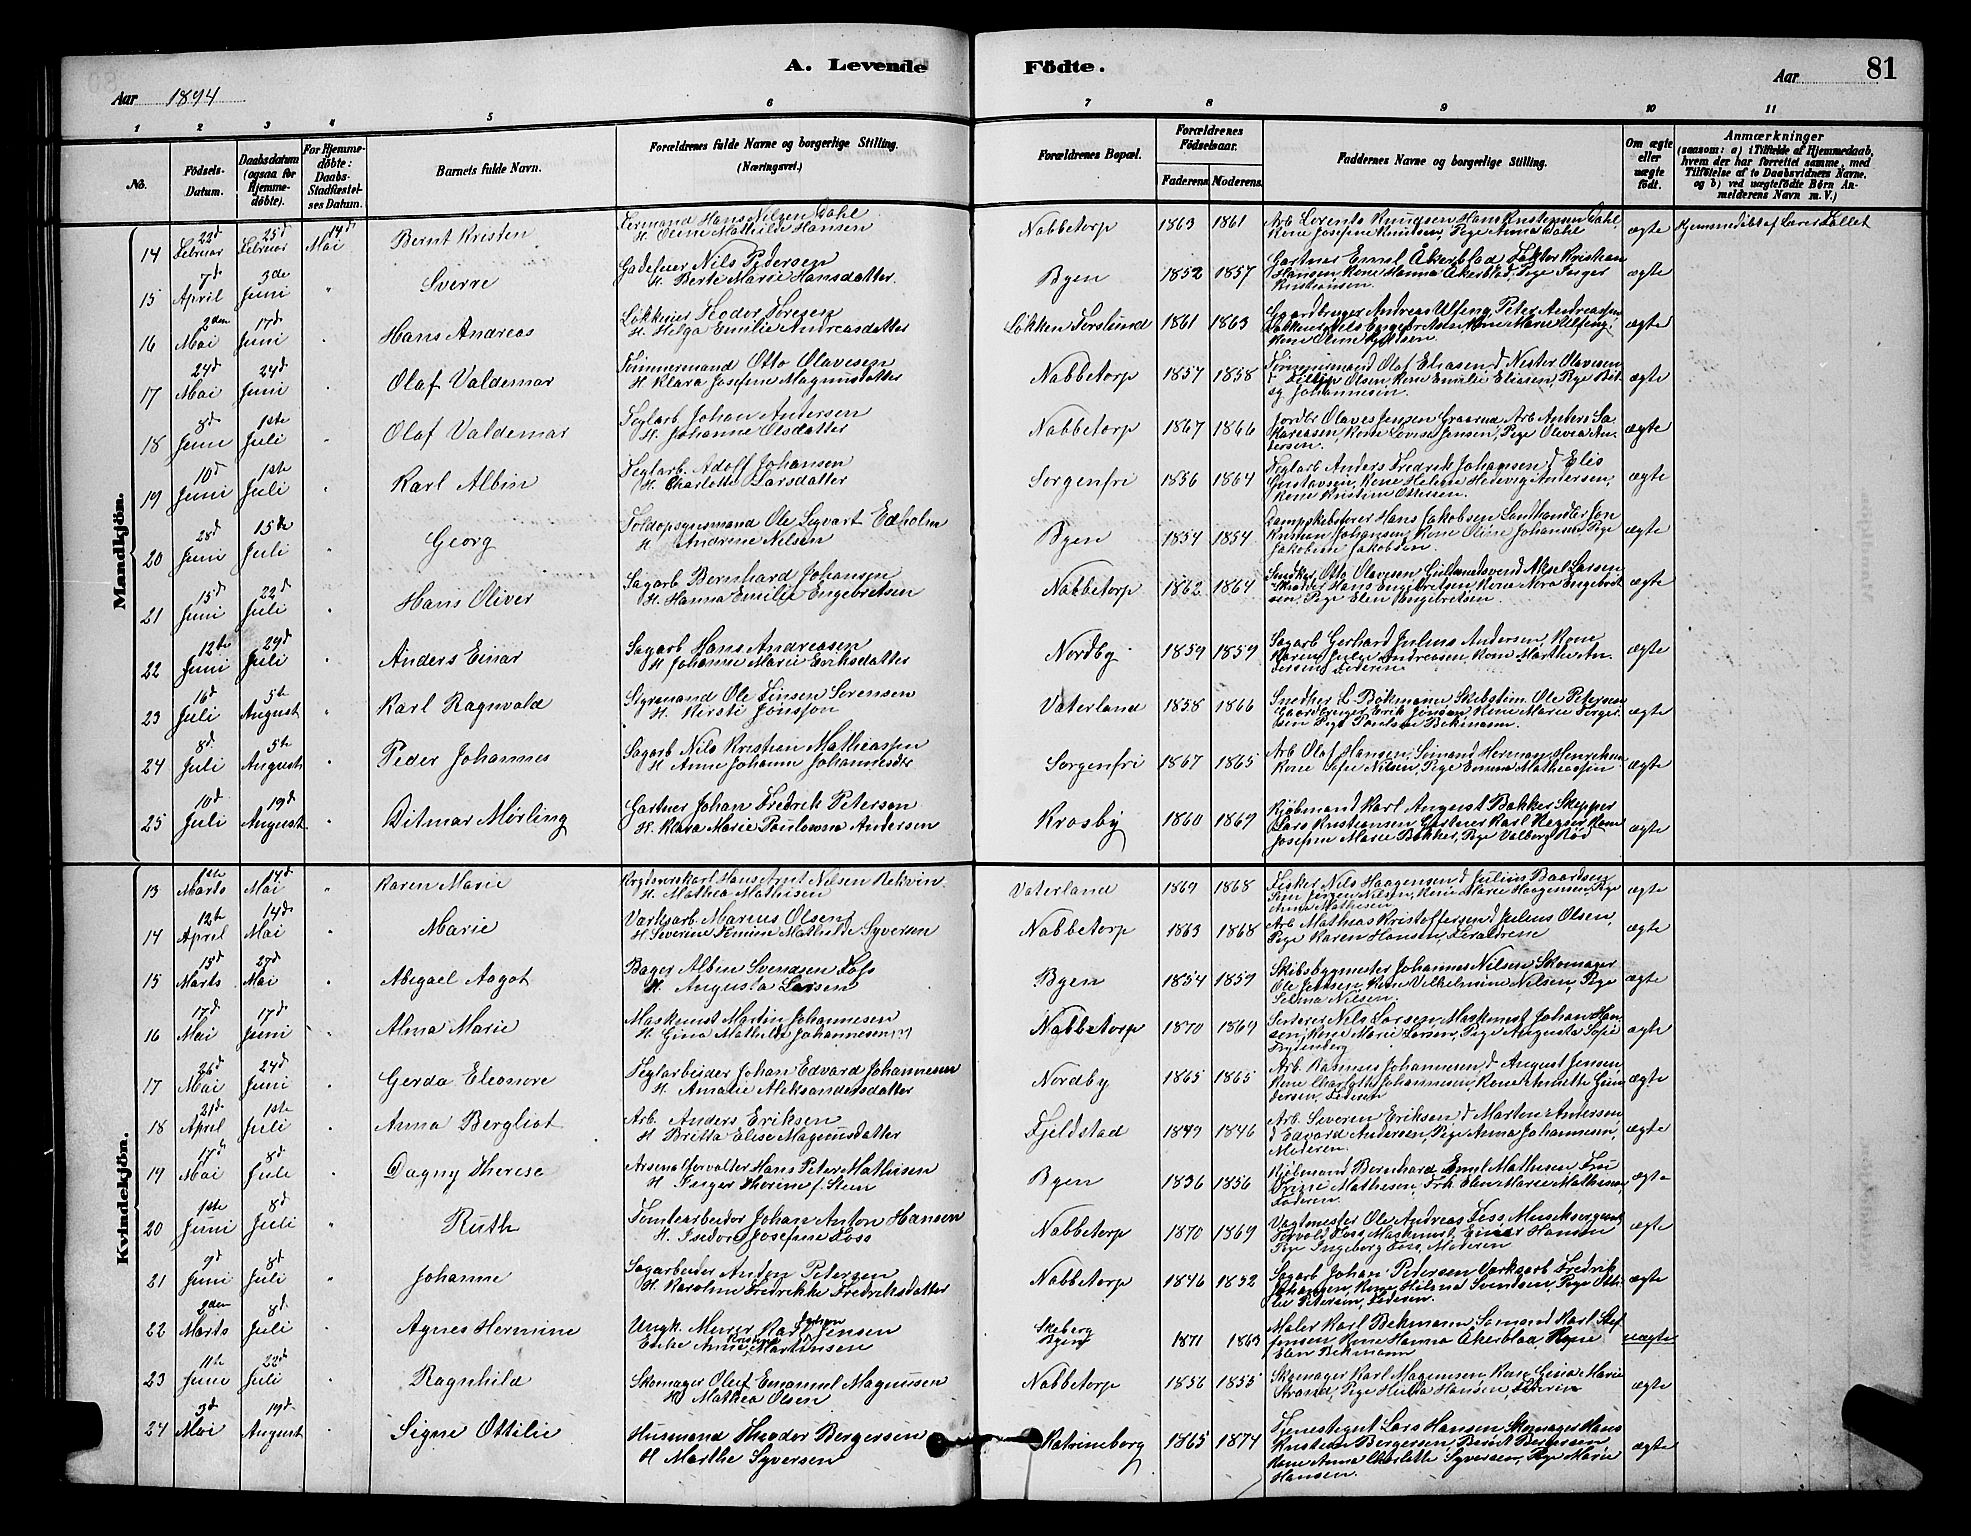 A. Levende Födte.
Aar 1894
Aar 81
1 2 3 4 5 6 7 8 9 10 11
No.
Födsels-Datum.
Daabsdatum (ogsaa for Hjemme-döbte).
For Hjemme-döbte: Daabs-Stadfæstel-ses Datum.
Barnets fulde Navn.
Forældrenes fulde Navne og borgerlige Stilling. (Næringsvei.)
Forældrenes Bopæl.
Forældrenes Födselsaar.
Faderens. Moderens.
Faddernes Navne og borgerlige Stilling.
Om ægte eller uægte födt.
Anmærkninger (saasom: a) i Tilfælde af Hjemmedaab, hvem der har forrettet samme, med Tilföielse af to Daabsvidners Navne, og b) ved uægtefödte Börn An-melderens Navn m. V.)
Mandkjön.
14 22d Februar 25d Februar 14d Mai Bernt Kristen Hans Nilsen Dahl H. Oline Mathilde Hansen Nabbetorp 1863 1861 Arb. Lorents Knudsen, Hans Kristensen Dahl, Kone Josefine Knudsen, Pige Anna Dahl ægte Hjemmedöbt af
15 7d April 3de Juni " Sverre Nils Pedersen H. Berte Marie Hansdatter Byen 1852 1857 Gartner Emil Åkerblad, Faktor Kristian Hansen, Kone Hanna Åkerblad, Pige Inger Kristiansen. ægte
16 2den Mai 17d Juni " Hans Andreas H. Helga Emilie Andreasdatter Løkken Torslund 1861 1863 Gaardbruger Andreas Ulfeng, Peter Andreassen ægte
17 24d Mai 24d Juni " Olaf Valdemar Tømmermand Otto Olavesen H. Klara Josefine Magnusdatter Nabbetorp 1857 1858 Tømmermand Olaf Eliasen, Olsen, Kone Emilie Eliasen, Pige Johannesen. ægte
18 8d Juni 1ste Juli " Olaf Valdemar Teglarb. Johan Andersen H. Johanne Olsdatter Nabbetorp 1867 1866 Olaves Jensen Graarud, Arb. Anders Kone Lovise Jensen, Pige Olivia Andersen. ægte
19 10d Juni 1ste Juli " Karl Albin Teglarb. Adolf Johansen H. Charlotte Larsdatter Sorgenfri 1856 1864 Teglarb. Anders Fredrik Johansen, Elis Gustavsen, Kone Helene Hedevig Andersen, Kone Kristine Ottersen. ægte
20 28d Juni 15de Juli " Georg Toldopsynsmand Ole Sigvart Edholm H. Andrene Nilsen Byen 1854 1854 Dampskibsfører Hans Jakobsen, Landhandler Jon Kristian Johansen, Kone Oline Johansen, Pige Jakobine Jakobsen. ægte
21 15d Juni 22d Juli Hans Oliver Sagarb. Bernhard Johansen H. Hanna Emilie Engebretsen Nabbetorp 1862 1864 Snedker Otto Olavesen, Guldsmedsvend Aksel Larsen, Hans Engebretsen, Kone Nora Engebretsen, Pige Elen Engebretsen. ægte
22 12te Juni 29d Juli " Anders Einar Sagarb. Hans Andreasen H. Johanne Marie Eriksdatter Nordby 1859 1859 Sagarb. Gerhard Julius Andersen, Kone Karen Julie Andreasen, Kone Marthe Andersen, Faderen ægte
23 16d Juli 5te August " Karl Ragnvald Styrmand Ole Finsen Sørensen H. Kirsti Jonsson Vaterland 1858 1866 Snedker L. Bökmann, Skibstim. Ole Petersen, Gaardbruger Erik Jonsson, Kone Marie Pige Pauline Bekmann. ægte
24 8d Juli 5te August " Peder Johannes Sagarb. Nils Kristian Mathiassen H. Anne Johanne Johannesdtr Sorgenfri 1867 1865 Arb. Olaf Hansen, Sømand Herman Henriksen, Kone Sofie Nilsen, Pige Emma Mathiassen ægte
25 10d Juli 19d August " Ditmar Mørling Gartner Johan Fredrik Petersen H. Klara Marie Paulowna Andersen Krosby 1860 1869 Kjøbmand Karl August Bakker, Skipper Lars Kristiansen, Gartner Karl Kone Josefine Marie Bakker, Pige Valborg ægte
Kvindekjön.
13 1ste Marts 14d Mai " Karen Marie Hans Arnt Nilsen Rekvin H. Mathea Mathisen Vaterland 1869 1868 Fisker Nils Haagensen, Julius Baardsen, Kone Marie Haagensen, Pige Anna Mathisen ægte
14 12te April 14d Mai " Marie Værksarb. Marius Olsen H. Severine Mathilde Syversen Nabbetorp 1863 1868 Arb. Mathias Kristoffersen, Julius Olsen, Pige Karen Hansen, Forældrene ægte
15 15d Marts 27d Mai " Abigael Aagot Bager Albin Svendsen Foss H. Augusta Larsen Byen 1854 1859 Skibsbygmester Johannes Nilsen, Skomager Ole Jensen, Kone Vilhelmine Nilsen, Pige Selma Nilsen. ægte
16 17d Mai 17d Juni " Alma Marie Maskinist Martin Johannesen H. Gina Mathilde Johannesen Nabbetorp 1870 1869 Nils Larsen, Maskinist Johan Hansen, Kone Marie Larsen, Pige Augusta Sofie Frydenberg ægte
17 26d Mai 24d Juni " Gerda Eleonore Teglarbeider Johan Edvard Johannesen H. Amalie Aleksandersdatter Nordby 1865 1865 Arb. Rasmus Johannesen, August Jensen, Kone Charlotte Johannesen, Kone Annette Gundersen, Faderen ægte
18 21d April 1ste Juli " Anna Bergliot Arb. Anders Eriksen H. Britta Elise Magnusdatter Fjeldstad 1849 1846 Arb. Severin Eriksen, Marton Andersen, Edvard Andersen, Pige Anna Johannesen, Moderen. ægte
19 17d Mai 8d Juli " Dagny Therese Arsenalforvalter Hans Peter Mathisen H. Inger Thorine f. Steen Byen 1836 1856 Kjøbmand Bernhard Emil Mathisen, Fru Mathesen, Frk. Elen Marie Mathisen, Faderen. ægte
20 1ste Juni 8d Juli " Ruth Tomtearbeider Johan Anton Hansen H. Isedora Josefine Foss Nabbetorp 1870 1869 Vagtmester Ole Andreas Foss, Musiksergeant Torvald Foss, Maskinist Einar Hansen, Pige Ingeborg Foss, Moderen ægte
21 9d Juni 8d Juli " Johanne Sagarbeider Anton Petersen H. Karoline Fredrikke Fredriksdatter Nabbetorp 1846 1852 Sagarb. Johan Petersen, Værksarb. Fredrik Johansen, Kone Helene Svendsen, Pige Ottilie Petersen, Faderen. ægte
22 2den Marts 8d Juli " Agnes Hermine Ungk. Murer Karl Jensen Enke Anne Kristine Martinsen Skeberg Byen 1871 1863 Maler Karl Bekmann, Sømand Karl Steffensen, Kone Hanna Åkerblad, Kone Elen Bekmann uægte
23 11te Juni 22d Juli " Ragnhild Skomager Oluf Emanuel Magnusen H. Mathea Olsen Nabbetorp 1856 1855 Skomager Karl Magnusen, Kone Gina Marie Strand, Pige Hulda Hansen, Faderen ægte
24 3d Mai 19d August " Signe Ottilie Husmand Theodor Bergersen H. Marthe Syversen Katrineborg 1865 1874 Tjenestegut Lars Hansen, Skomager Hans Kristian Bergersen, Berndt Bergersen, Kone Anna Charlotte Syversen, Pige Marie Hansen. ægte